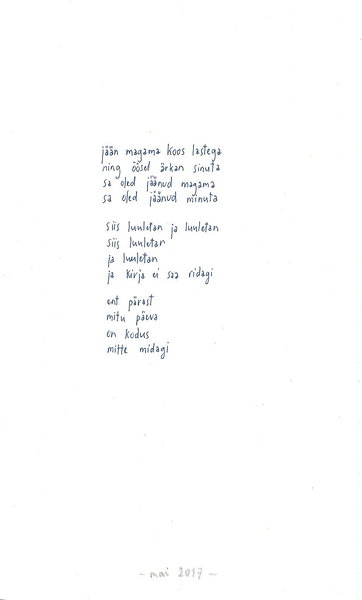 jään magama koos lastega
ning öösel ärkan sinuta
sa oled jäänud magama
sa oled jäänud minuta
siis luuletan ja luuletan
siis luuletan
ja luuletan
ja kirja ei saa ridagi
ent pärast
mitu päeva
on kodus
mitte midagi
- mai 2017 -